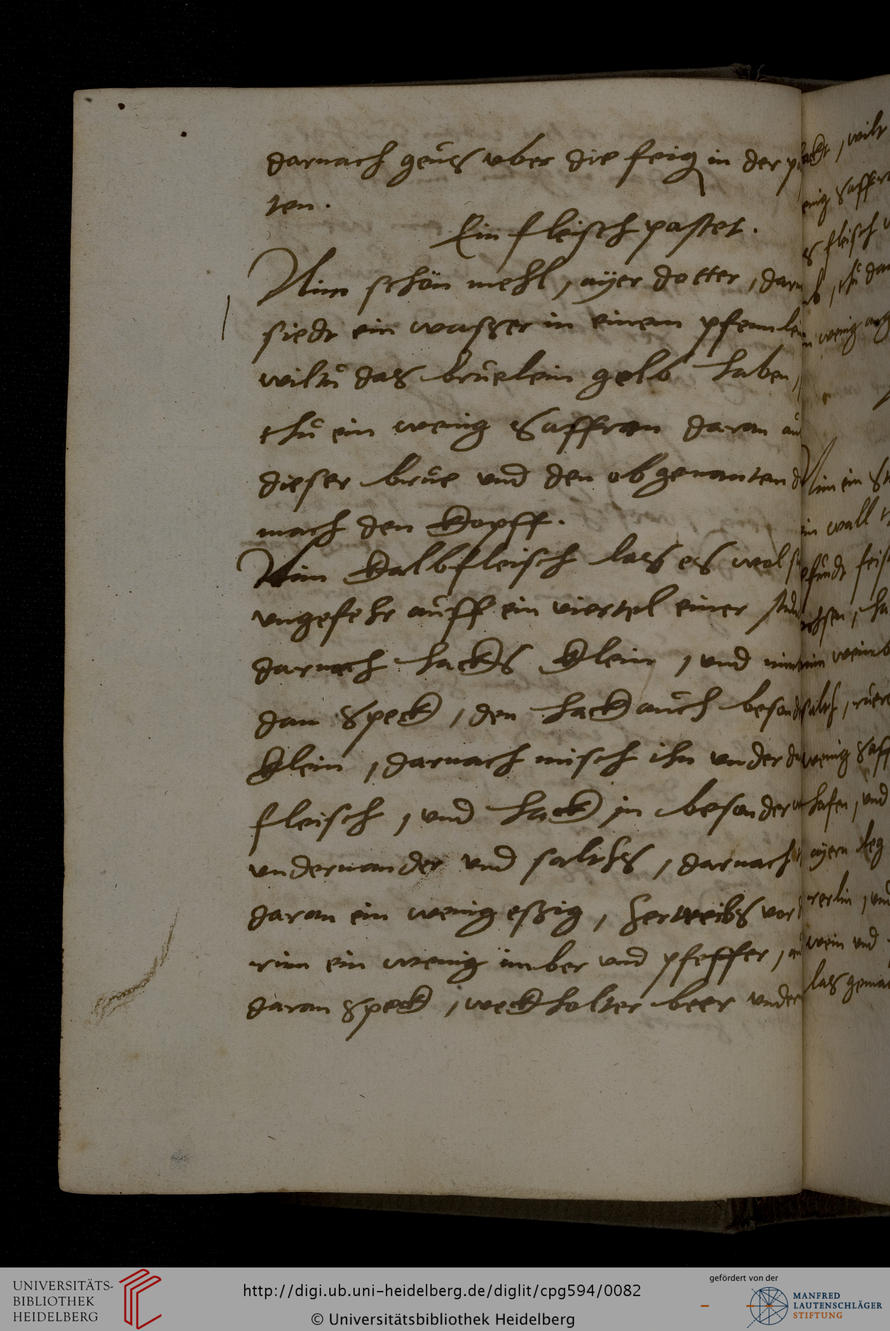 darnach geus vber die feig in der p
ten.
Ein fleisch pastet.
Nim schön mehl, ayer dotter, dar
siedt ein wasser in einem pfennlei
wiltu das bruelein gelb haben,
thu ein wenig saffran daran au
dieser brue vnd den obgenanten
mach den kopff.
Nim kalbfleisch las es wol
vngefehr auff ein viertel einer stund
darnach hacks klein, vnd nim
dan speck, den hack auch besond
klein, darnach misch ihn vnder d
fleisch, vnd hack jn besonder
vndernander vnd saltzs, darnach
daran ein wenig essig, zertreibs vor
nim ein wenig imber vnd pfeffer,
daran speck, weckholter beer vnder
wilt
wenig saffr
fleisch
thu dar
wenig
Nim ein
wall
wein
wenig saff
hafen, vnd
ayern leg
wein vnd
las gema
UNIVERSITÄTS-
BIBLIOTHEK
HEIDELBERG
http://digi.ub.uni-heidelberg.de/diglit/cpg594/0082
© Universitätsbibliothek Heidelberg
gefördert von der
MANFRED
LAUTENSCHLÄGER
STIFTUNG